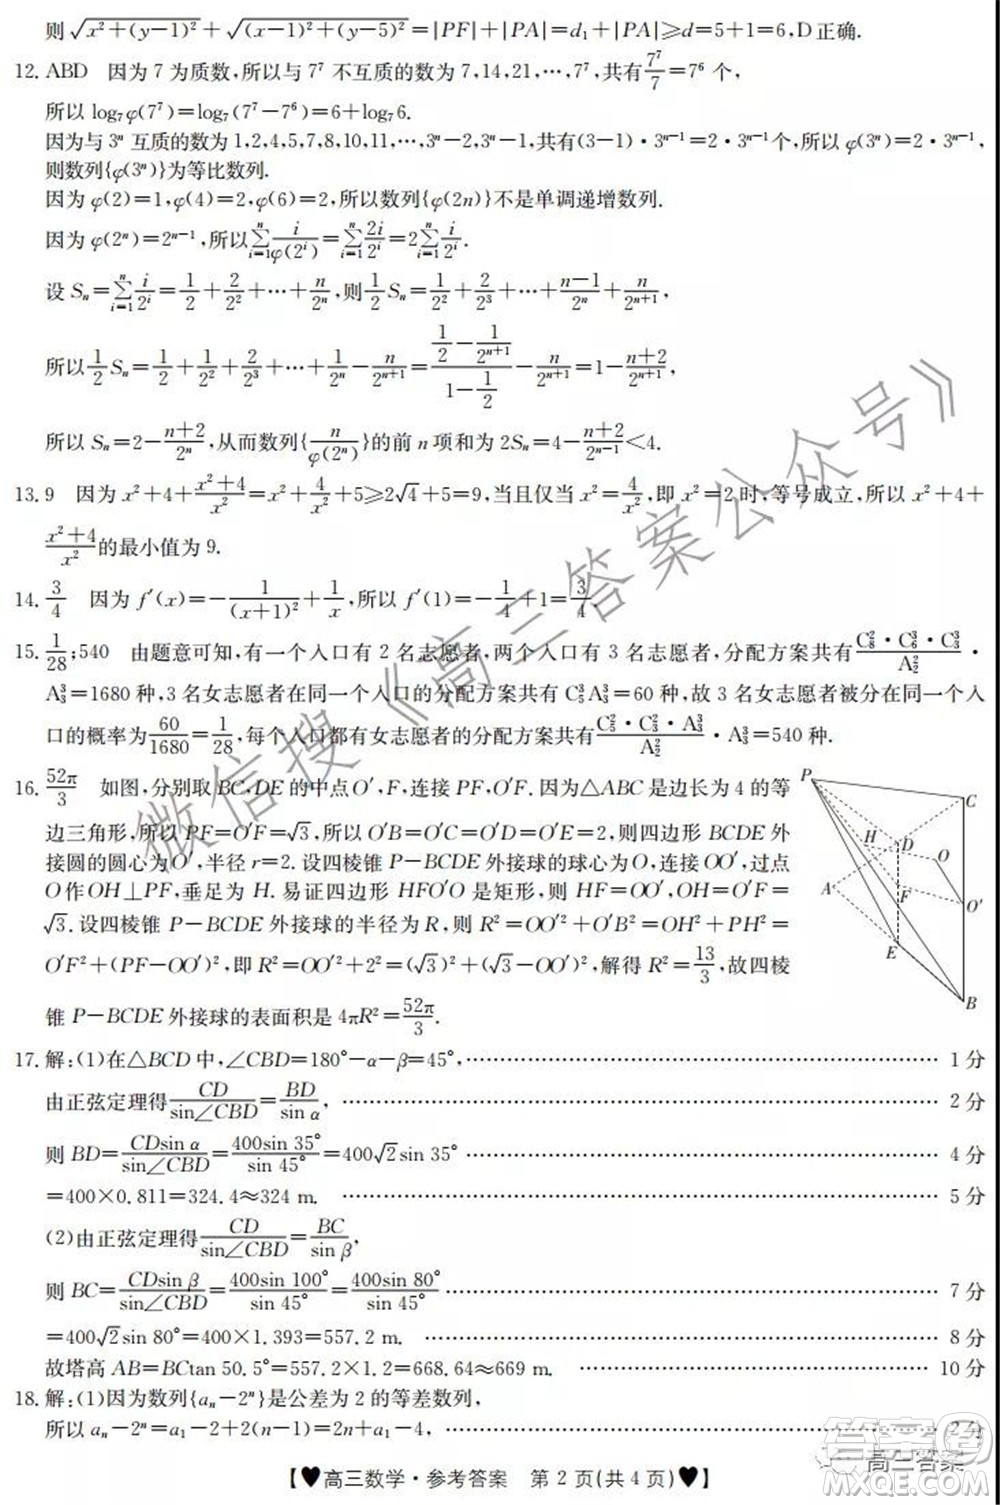 则√(x²+(y−1)²)+√((x−1)²+(y−5)²)=|PF|+|PA|=d₁+|PA|⩾d=5+1=6,D正确.
12. ABD 因为7为质数,所以与7⁷不互质的数为7,14,21,…,7⁷,共有7⁷/7=7⁶个,
所以log₇φ(7⁷)=log₇(7⁷−7⁶)=6+log₇6.
因为与3ⁿ互质的数为1,2,4,5,7,8,10,11,…,3ⁿ−2,3ⁿ−1,共有(3−1)·3ⁿ⁻¹=2·3ⁿ⁻¹个,所以φ(3ⁿ)=2·3ⁿ⁻¹,
则数列{φ(3ⁿ)}为等比数列.
因为φ(2)=1,φ(4)=2,φ(6)=2,所以数列{φ(2n)}不是单调递增数列.
因为φ(2ⁿ)=2ⁿ⁻¹,所以∑ⁿᵢ₌₁ i/φ(2ⁱ)=∑ⁿᵢ₌₁ 2i/2ⁱ=2∑ⁿᵢ₌₁ i/2ⁱ.
设Sₙ=∑ⁿᵢ₌₁ i/2ⁱ=1/2+2/2²+…+n/2ⁿ,则1/2 Sₙ=1/2²+2/2³+…+(n−1)/2ⁿ+n/2ⁿ⁺¹,
所以1/2 Sₙ=1/2+1/2²+2/2³+…+1/2ⁿ−n/2ⁿ⁺¹=(1/2−1/2ⁿ⁺¹)/(1−1/2)−n/2ⁿ⁺¹=1−(n+2)/2ⁿ⁺¹,
所以Sₙ=2−(n+2)/2ⁿ,从而数列{n/φ(2ⁿ)}的前n项和为2Sₙ=4−(n+2)/2ⁿ⁻¹<4.
13. 9 因为x²+4+(x²+4)/x²=x²+4/x²+5⩾2√4+5=9,当且仅当x²=4/x²,即x²=2时,等号成立,所以x²+4+
(x²+4)/x²的最小值为9.
14. 3/4 因为f′(x)=−1/(x+1)²+1/x,所以f′(1)=−1/4+1=3/4.
15. 1/28;540 由题意可知,有一个入口有2名志愿者,两个入口有3名志愿者,分配方案共有(C₈²·C₆³·C₃³)/A₂²·
A₃³=1680种,3名女志愿者在同一个入口的分配方案共有C₅²A₃³=60种,故3名女志愿者被分在同一个入
口的概率为60/1680=1/28,每个入口都有女志愿者的分配方案共有(C₅²·C₃²·A₃³)/A₂²·A₃³=540种.
16. 52π/3 如图,分别取BC,DE的中点O′,F,连接PF,O′F.因为△ABC是边长为4的等
边三角形,所以PF=O′F=√3,所以O′B=O′C=O′D=O′E=2,则四边形BCDE外
接圆的圆心为O′,半径r=2.设四棱锥P−BCDE外接球的球心为O,连接OO′,过点
O作OH⊥PF,垂足为H.易证四边形HFO′O是矩形,则HF=OO′,OH=O′F=
√3.设四棱锥P−BCDE外接球的半径为R,则R²=OO′²+O′B²=OH²+PH²=
O′F²+(PF−OO′)²,即R²=OO′²+2²=(√3)²+(√3−OO′)²,解得R²=13/3,故四棱
锥P−BCDE外接球的表面积是4πR²=52π/3.
P
C
H
D
O
A
F
O′
E
B
17. 解:(1)在△BCD中,∠CBD=180°−α−β=45°,…… 1分
由正弦定理得CD/sin∠CBD=BD/sin α,…… 2分
则BD=CDsin α/sin∠CBD=400sin 35°/sin 45°=400√2sin 35° …… 4分
=400×0.811=324.4≈324 m. …… 5分
(2)由正弦定理得CD/sin∠CBD=BC/sin β,
则BC=CDsin β/sin∠CBD=400sin 100°/sin 45°=400sin 80°/sin 45° …… 7分
=400√2sin 80°=400×1.393=557.2 m. …… 8分
故塔高AB=BCtan 50.5°=557.2×1.2=668.64≈669 m. …… 10分
18. 解:(1)因为数列{aₙ−2ⁿ}是公差为2的等差数列,
所以aₙ−2ⁿ=a₁−2+2(n−1)=2n+a₁−4,…… 2分
【♥高三数学·参考答案 第2页(共4页)♥】
微信搜《高三答案公众号》
高三答案
答案圈
MXQE.COM